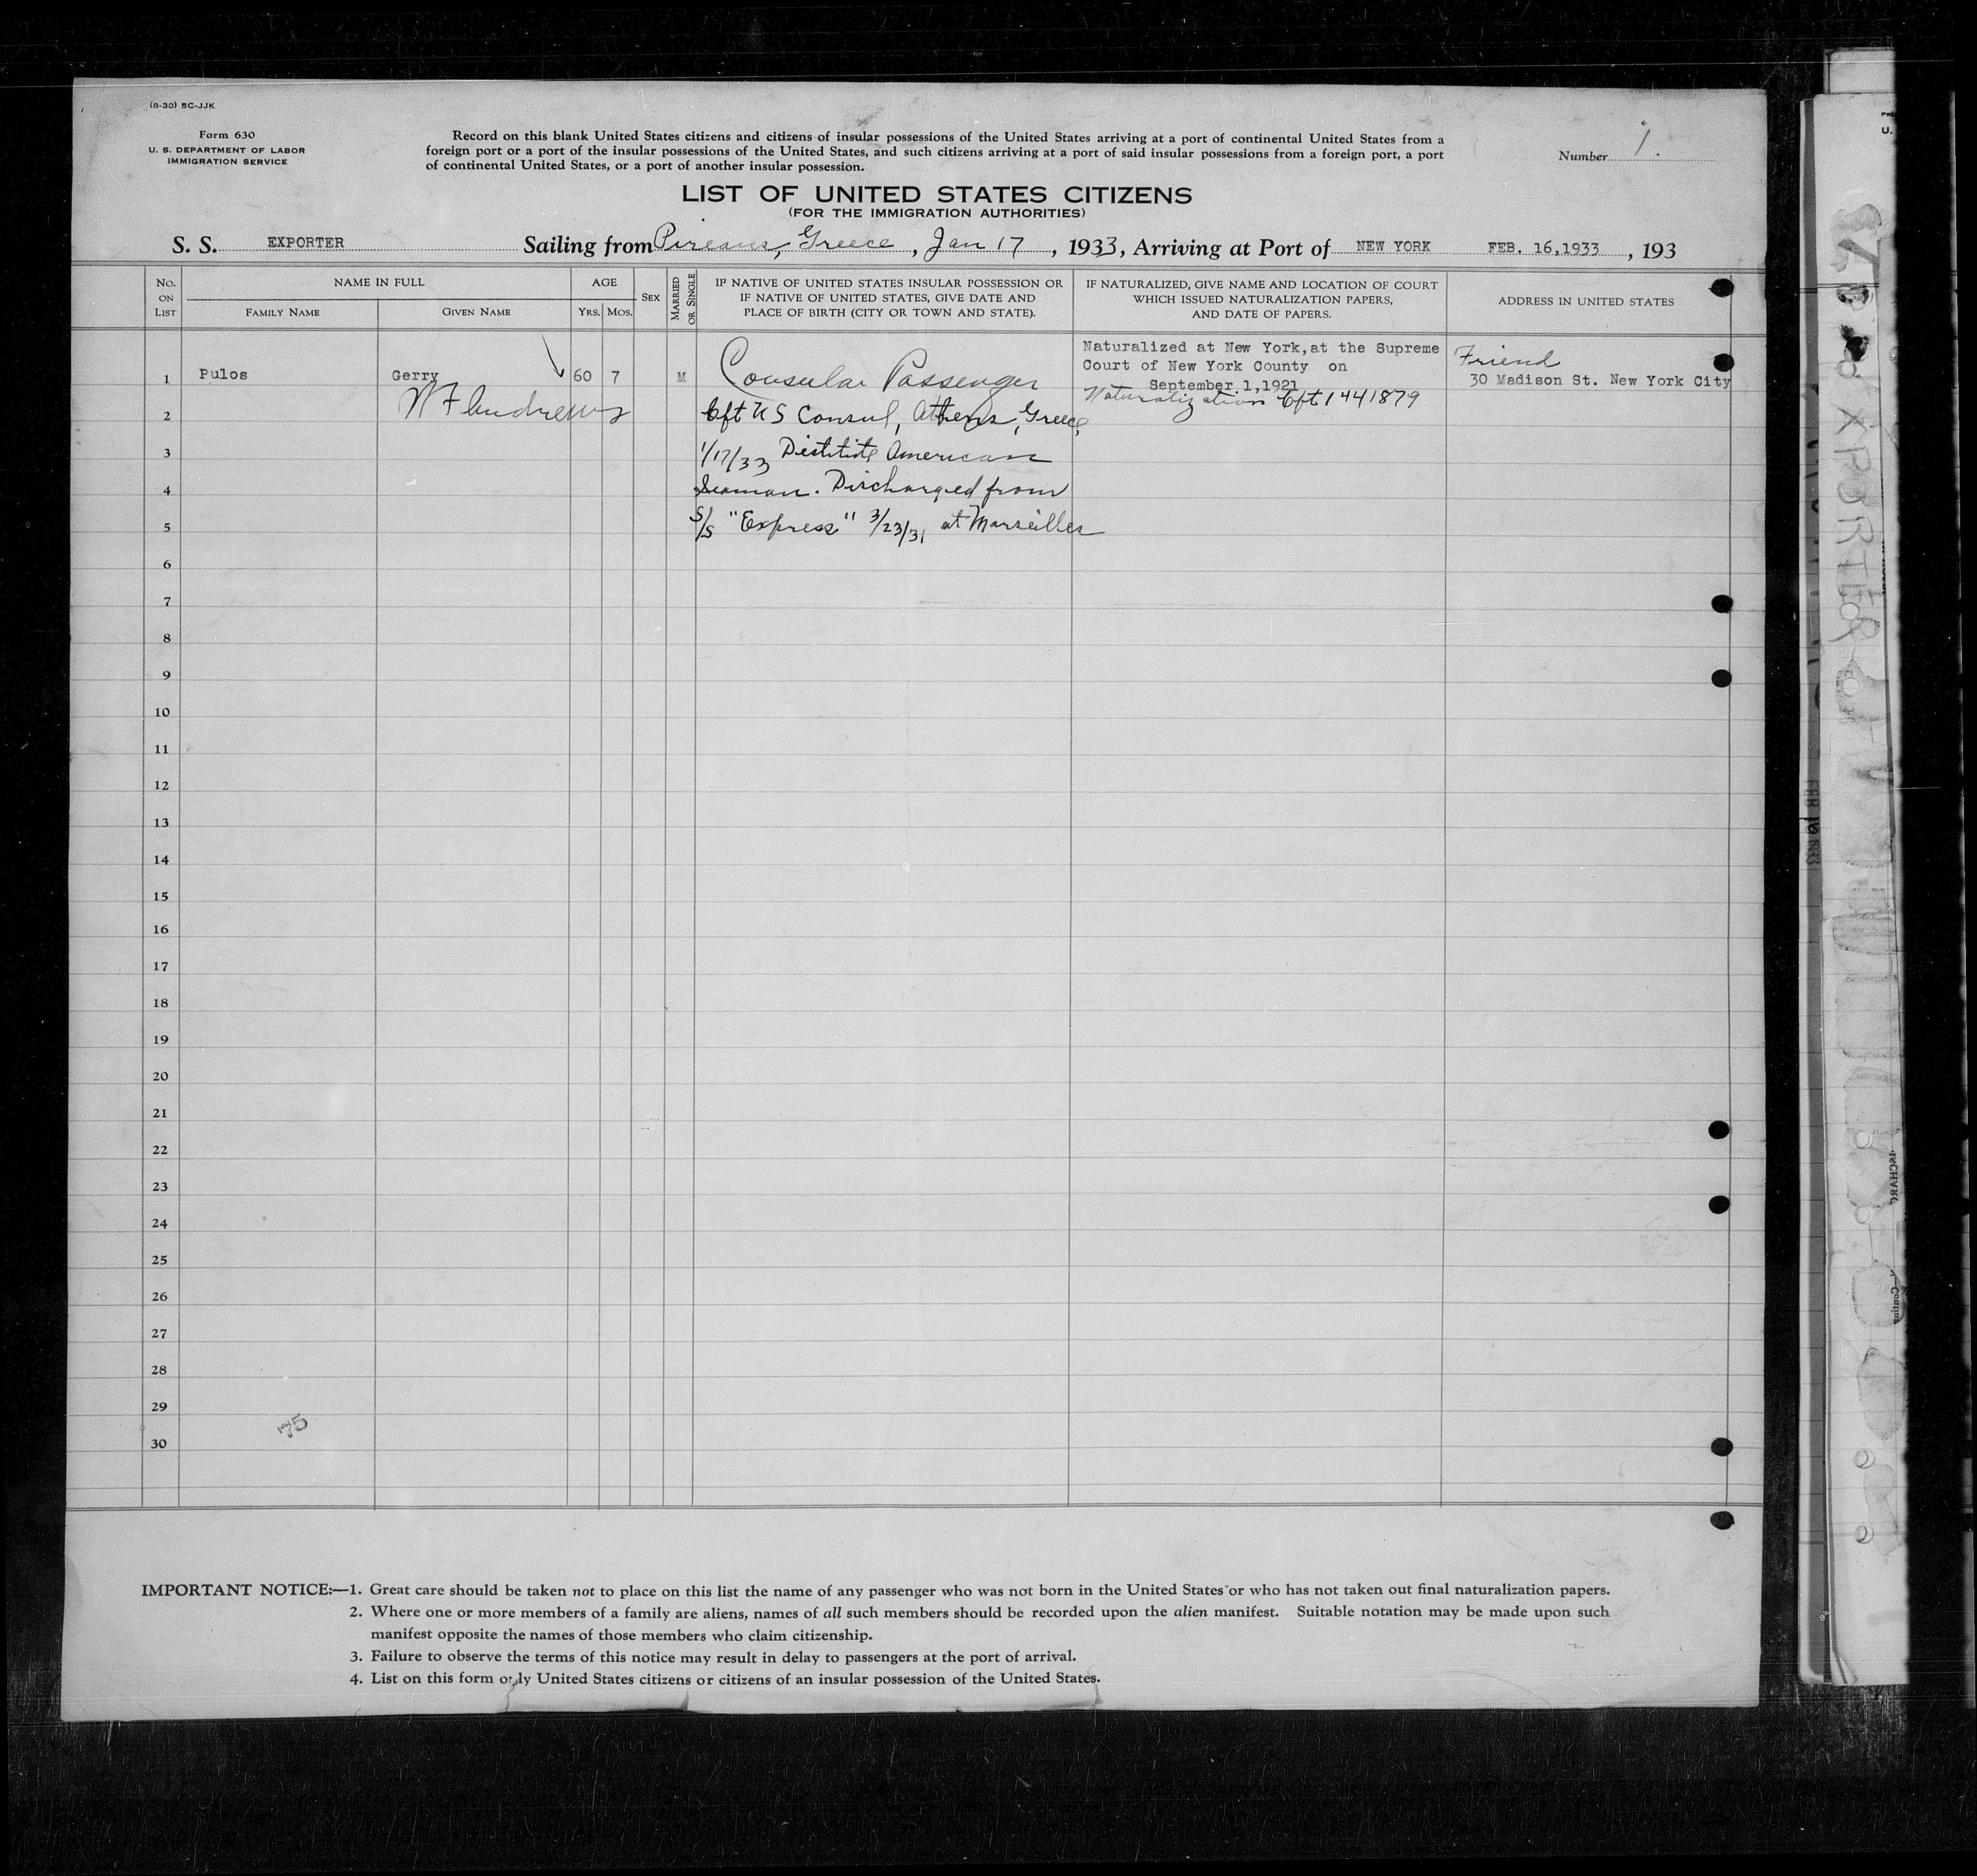 (8-30) 5C-JJK
Form 630
U. S. DEPARTMENT OF LABOR
IMMIGRATION SERVICE
Record on this blank United States citizens and citizens of insular possessions of the United States arriving at a port of continental United States from a
foreign port or a port of the insular possessions of the United States, and such citizens arriving at a port of said insular possessions from a foreign port, a port
of continental United States, or a port of another insular possession.
Number 1.
LIST OF UNITED STATES CITIZENS
(FOR THE IMMIGRATION AUTHORITIES)
S. S. EXPORTER Sailing from Pireaus, Greece, Jan 17, 1933, Arriving at Port of NEW YORK FEB. 16,1933, 193
No. ON LIST
NAME IN FULL
FAMILY NAME
GIVEN NAME
AGE
YRS. MOS.
SEX
MARRIED OR SINGLE
IF NATIVE OF UNITED STATES INSULAR POSSESSION OR
IF NATIVE OF UNITED STATES, GIVE DATE AND
PLACE OF BIRTH (CITY OR TOWN AND STATE).
IF NATURALIZED, GIVE NAME AND LOCATION OF COURT
WHICH ISSUED NATURALIZATION PAPERS,
AND DATE OF PAPERS.
ADDRESS IN UNITED STATES
1 Pulos Gerry 60 7 M Consular Passenger
Naturalized at New York, at the Supreme
Court of New York County on
September 1,1921
Naturalization Cft 1441879
Friend
30 Madison St. New York City
W F Andrews
2 Cft US Consul, Athens, Greece,
3 1/17/33 Distitute American
4 Seaman. Discharged from
5 S/S "Express" 3/23/31 at Marseilles
6
7
8
9
10
11
12
13
14
15
16
17
18
19
20
21
22
23
24
25
26
27
28
29
30
75
IMPORTANT NOTICE:—1. Great care should be taken not to place on this list the name of any passenger who was not born in the United States or who has not taken out final naturalization papers.
2. Where one or more members of a family are aliens, names of all such members should be recorded upon the alien manifest. Suitable notation may be made upon such
manifest opposite the names of those members who claim citizenship.
3. Failure to observe the terms of this notice may result in delay to passengers at the port of arrival.
4. List on this form only United States citizens or citizens of an insular possession of the United States.